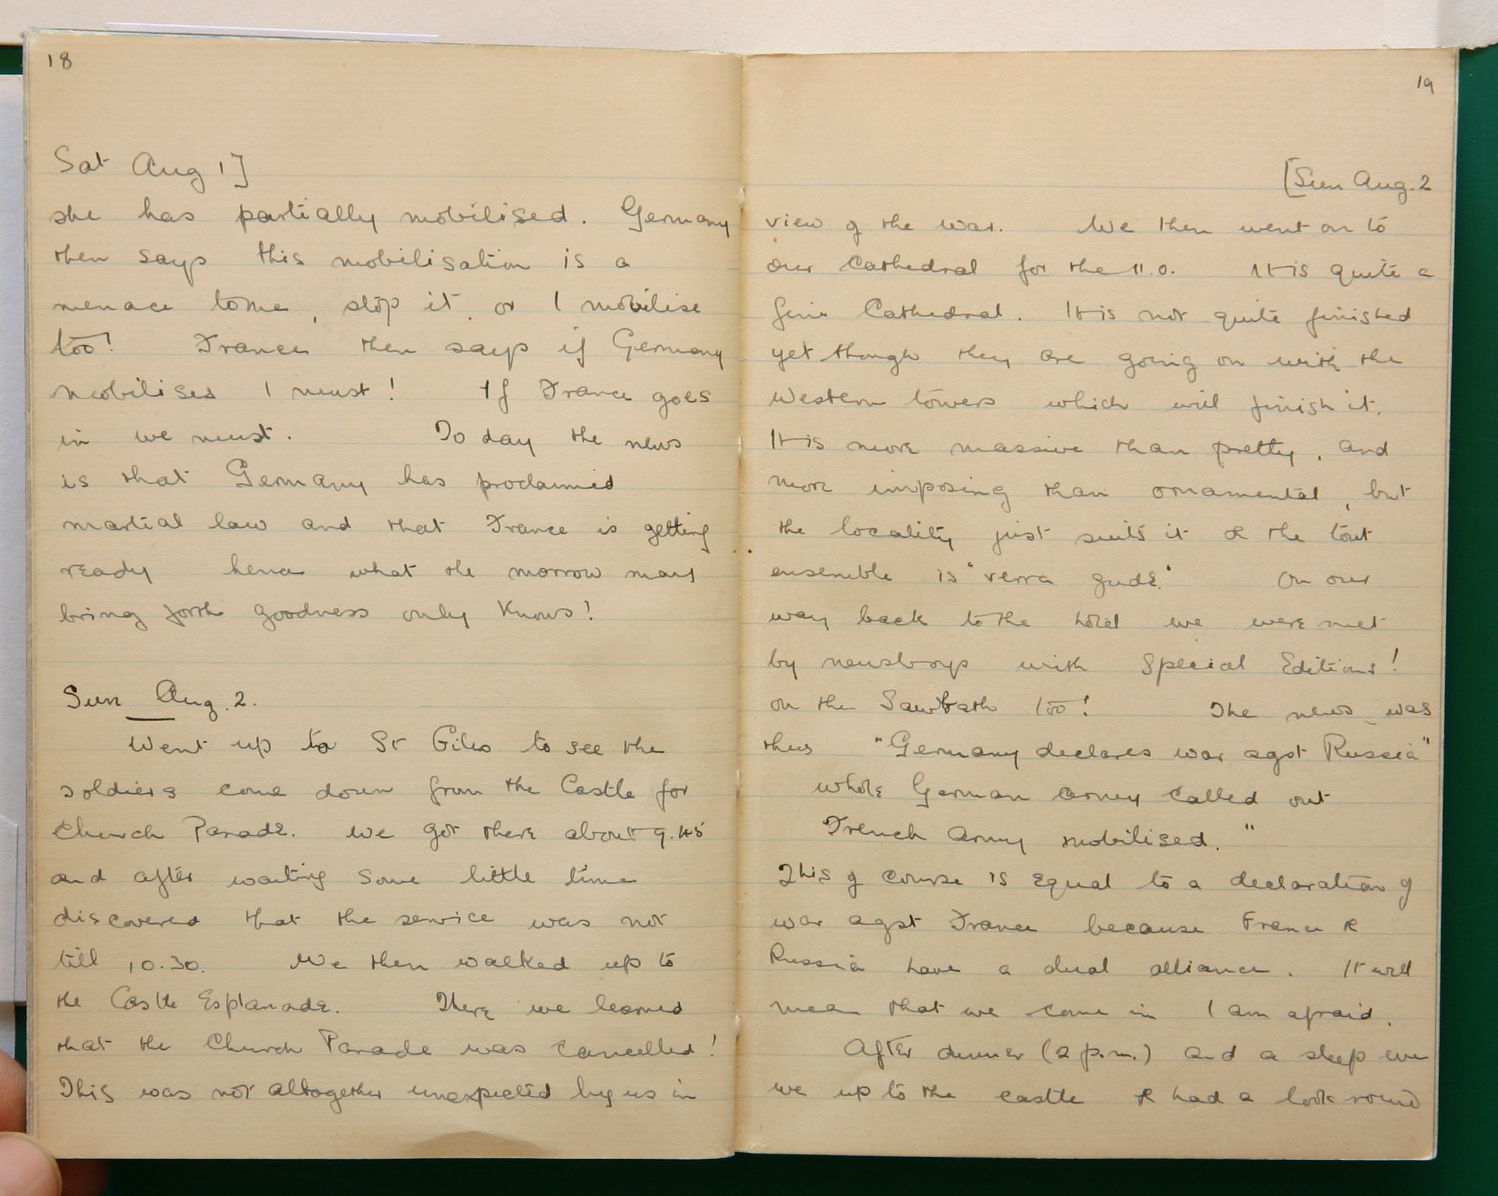 18
Sat Aug 1]
she has partially mobilised. Germany
then says this mobilisation is a
menace to me, stop it, or I mobilise
too! France then says if Germany
mobilises I must! If France goes
in we must. To day the news
is that Germany has proclaimed
martial law and that France is getting
ready hence what the morrow may
bring forth goodness only knows!
Sun Aug. 2.
Went up to St Giles to see the
soldiers come down from the Castle for
Church Parade. We got there about 9.45
and after waiting some little time
discovered that the service was not
till 10.30. We then walked up to
the Castle Esplanade. There we learned
that the Church Parade was cancelled!
This was not altogether unexpected by us in
19
[Sun Aug. 2
view of the war. We then went on to
our Cathedral for the 11.0. It is quite a
fine Cathedral. It is not quite finished
yet though they are going on with the
Western towers which will finish it.
It is more massive than pretty, and
more imposing than ornamental, but
the locality just suits it & the tout
ensemble is "verra gude." On our
way back to the hotel we were met
by newsboys with Special Editions!
on the Sawbath too! The news was
thus "Germany declares war agst Russia"
whole German army called out
French Army mobilised."
This of course is equal to a declaration of
war agst France because France &
Russia have a dual alliance. It will
mean that we come in I am afraid.
After dinner (2 p.m.) and a sleep
we up to the castle & had a look round